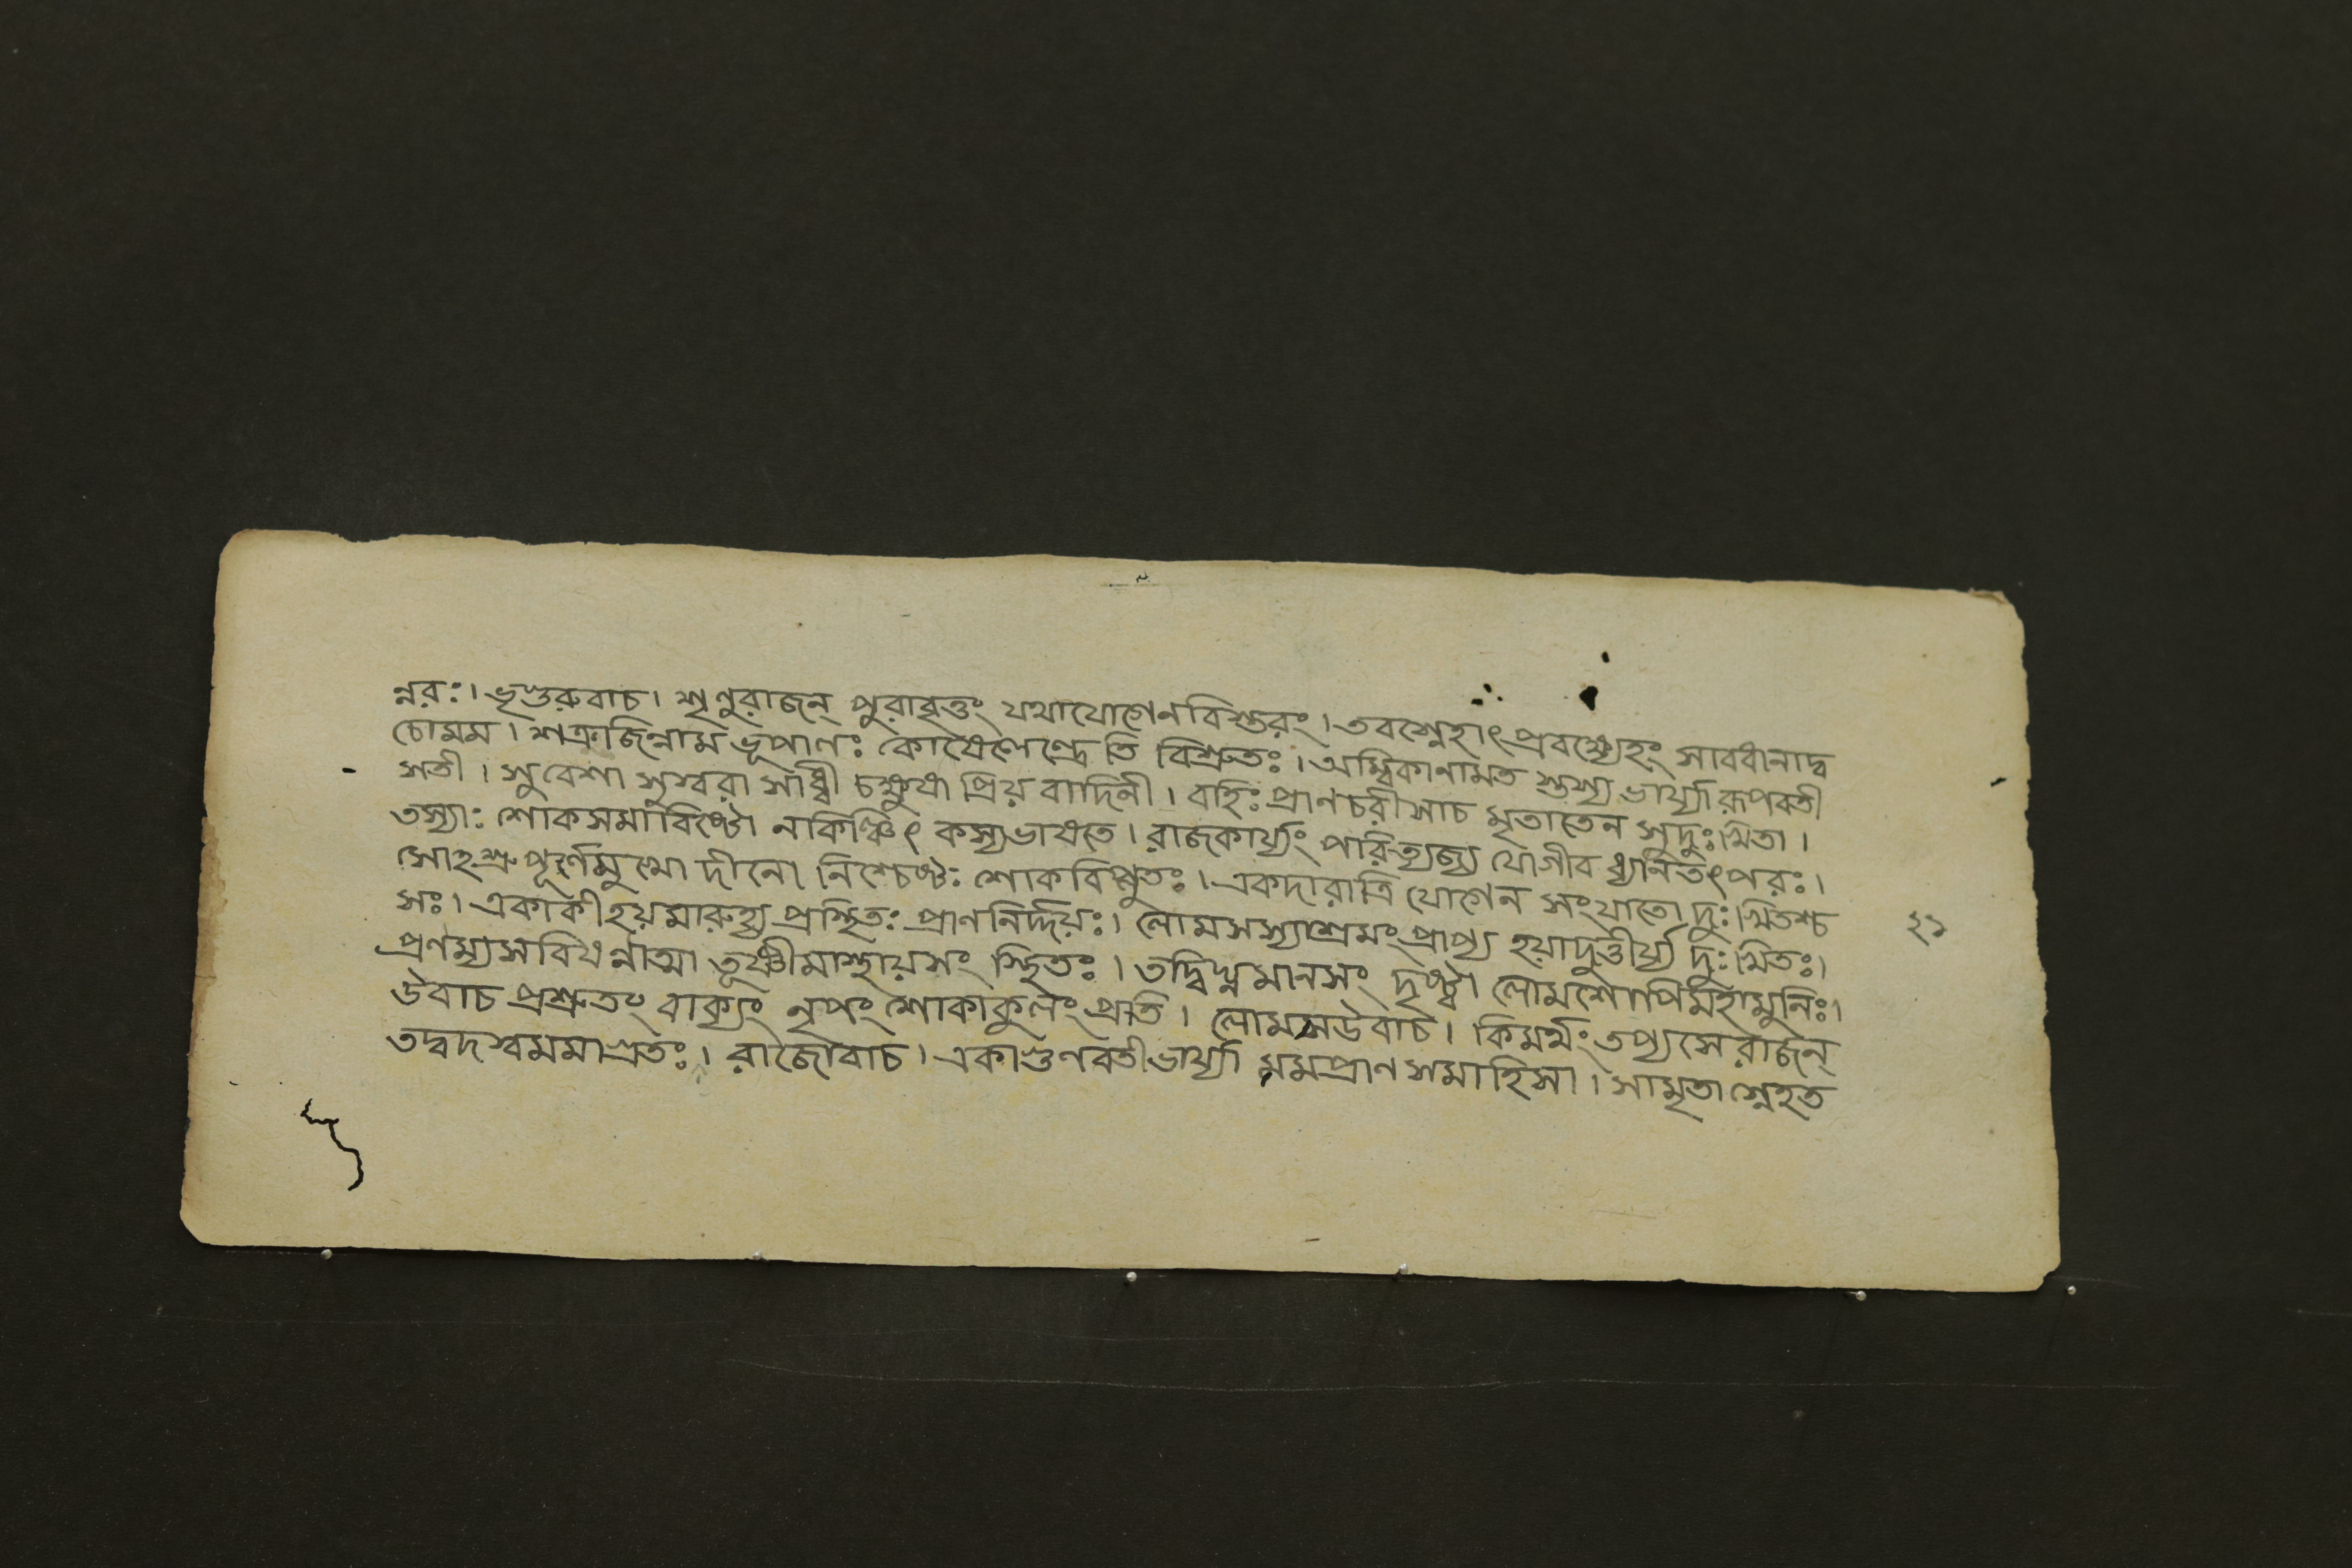 ন্নরঃ। ভৃগুরুবাচ। শৃণুরাজন্ পুরাবৃত্তং যথাযোগেনবিস্তরং। তবস্নেহাৎপ্রবক্ষ্যেহং সাবধানাদ্ব
চোমম। শত্রুজিন্নাম ভূপালঃ কোষলেন্দ্রেতি বিশ্রুতঃ। অম্বিকানামত স্তস্য ভার্য্যা রূপবতী
সতী। সুবেশা সুস্বরা সাধ্বী চক্ষুষা প্রিয়বাদিনী। বহিঃ প্রাণচরীসাচ মৃতাতেন সুদুঃখিতা।
তস্যাঃ শোকসমাবিষ্টো নাকিঞ্চিৎ কস্যভাষতে। রাজকার্য্যং পরিত্যজ্য যোগীব ধ্যানতৎপরঃ।
সোহশ্রুপূর্ণমুখো দীনো নিশ্চেষ্টঃ শোকবিপ্লুতঃ। একদারাত্রি যোগেন সংযাতো দুঃখিতশ্চ
সঃ। একাকীহয়মারুহ্য প্রস্থিতঃ প্রাণনির্দ্দয়ঃ। লোমসস্যাশ্রমং প্রাপ্য হয়াদুত্তীর্য্য দুঃখিতঃ।
প্রণম্যসবিষণ্ণাত্মা তূষ্ণীমাস্থায়সং স্থিতঃ। তদ্বিঘ্নমানসং দৃষ্ট্বা লোমশোপিমহামুনিঃ।
উবাচ প্রশ্রুতং বাক্যং নৃপং শোকাকুলং প্রতি। লোমসউবাচ। কিমর্থং তপ্যসে রাজন্
তদ্বদশ্বমমাগ্রতঃ। রাজোবাচ। একাগুণবতীভার্য্যা মমপ্রাণসমাহিসা। সামৃতা স্নেহত
২১